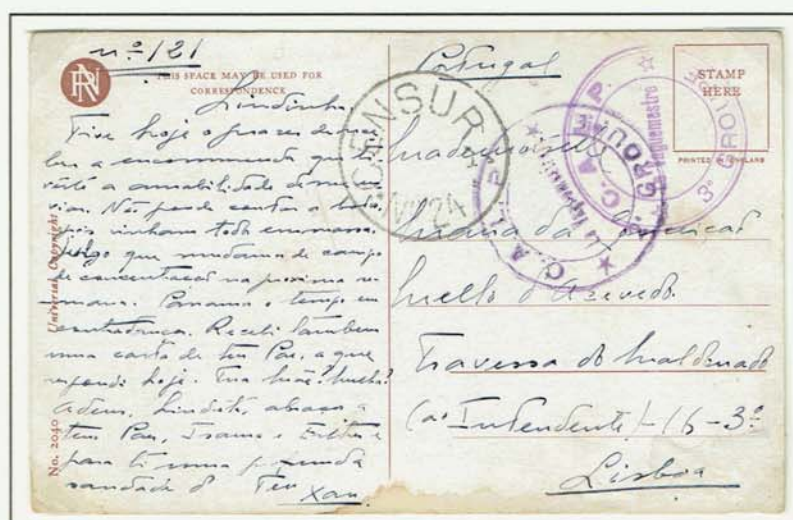 nº 121
THIS SPACE MAY BE USED FOR
CORRESPONDENCE
Lindinha
Tive hoje o prazer de rece-
ber a encommenda que ti-
véste a amabilidade de me en-
viar. Não pude contar a bola
pois vinham toda em massa.
Julgo que mudamos de campo
de concentração na proxima se-
mana. Passamos o tempo em
contradança. Recebi tambem
uma carta de teu Pae, a que
respondi hoje. Tua Mãe? Melhor?
Adeus, Lindinha, abraços a
teu Pae,
para ti uma profunda
saudade do Teu
Xau
Universal Copyright
No. 2040
RN
CENSURA
Nº 24
C.A.P.
3º GROUPE
Le Vaguemestre
C.A.P.
3º GROUPE
Le Vaguemestre
STAMP
HERE
PRINTED IN ENGLAND
Portugal
Mademoiselle
Maria da Conceição
Mello d'Azevedo
Travessa do Maldonado
(ao Intendente) - 16 - 3º
Lisboa